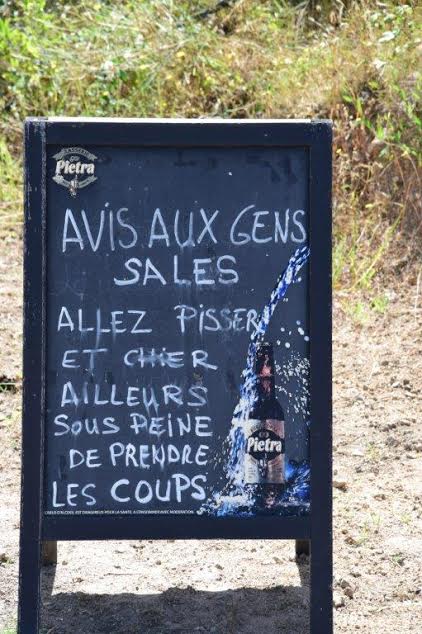 Pietra
AVIS AUX GENS
SALES
ALLEZ PISSER
ET CHIER
AILLEURS
SOUS PEINE
DE PRENDRE
LES COUPS
Pietra
L'ABUS D'ALCOOL EST DANGEREUX POUR LA SANTÉ, À CONSOMMER AVEC MODÉRATION.